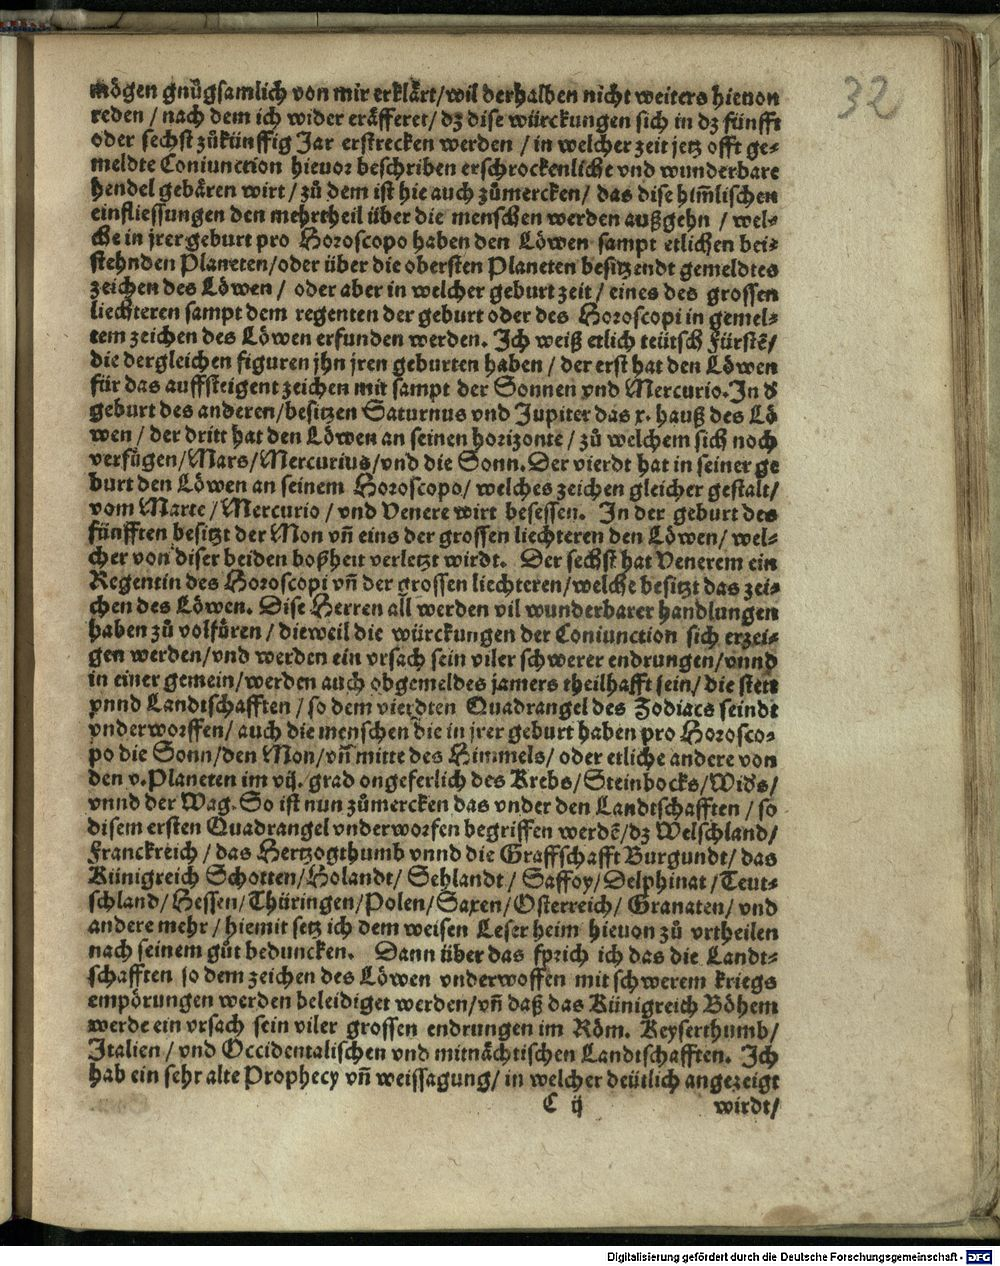 mögen gnůgsamlich von mir erklärt/wil derhalben nicht weiters hieuon
reden / nach dem ich wider eräfferet/ dz dise würckungen sich in dz fünfft
oder sechst zůkünffig Jar erstrecken werden / in welcher zeit jetz offt ge-
meldte Coniunction hieuor beschriben erschrockenliche vnd wunderbare
hendel gebären wirt / zů dem ist hie auch zůmercken/ das dise him̄lischen
einfliessungen den mehrtheil über die menschen werden außgehn / wel-
che in jrer geburt pro Horoscopo haben den Löwen sampt etlichen bei-
stehnden Planeten/oder über die obersten Planeten besitzendt gemeldtes
zeichen des Löwen / oder aber in welcher geburt zeit / eines des grossen
liechteren sampt dem regenten der geburt oder des Horoscopi in gemel-
tem zeichen des Löwen erfunden werden. Ich weiß etlich teütsch Fürstē/
die dergleichen figuren jhn jren geburten haben / der erst hat den Löwen
für das auffsteigent zeichen mit sampt der Sonnen vnd Mercurio. In d̕
geburt des anderen/besitzen Saturnus vnd Jupiter das x. hauß des Lö
wen / der dritt hat den Löwen an seinen horizonte / zů welchem sich noch
verfügen/Mars/Mercurius/vnd die Sonn. Der vierdt hat in seiner ge
burt den Löwen an seinem Horoscopo/ welches zeichen gleicher gestalt/
vom Marte / Mercurio / vnd Venere wirt besessen. In der geburt des
fünfften besitzt der Mon vn̄ eins der grossen liechteren den Löwen/ wel-
cher von diser beiden boßheit verletzt wirdt. Der sechst hat Venerem ein
Regentin des Horoscopi vn̄ der grossen liechteren/welche besitzt das zei-
chen des Löwen. Dise Herren all werden vil wunderbarer handlungen
haben zů volfüren / dieweil die würckungen der Coniunction sich erzei-
gen werden/vnd werden ein vrsach sein viler schwerer endrungen/vnnd
in einer gemein/werden auch obgemeldes jamers theilhafft sein/ die stett
vnnd Landtschafften / so dem vierdten Quadrangel des Zodiacs seindt
vnderworffen/ auch die menschen die in jrer geburt haben pro Horosco-
po die Sonn/den Mon/vn̄ mitte des Himmels/ oder etliche andere von
den v. Planeten im vij. grad ongeferlich des Krebs/Steinbocks/Wids/
vnnd der Wag. So ist nun zůmercken das vnder den Landtschafften / so
disem ersten Quadrangel vnderworfen begriffen werdē/dz Welschland/
Franckreich / das Hertzogthumb vnnd die Graffschafft Burgundt/ das
Künigreich Schotten/Holandt/ Sehlandt / Saffoy/Delphinat /Teut-
schland/Hessen/Thüringen/Polen/Saxen/Osterreich/ Granaten/ vnd
andere mehr / hiemit setz ich dem weisen Leser heim hieuon zů vrtheilen
nach seinem gůt beduncken. Dann über das sprich ich das die Landt-
schafften so dem zeichen des Löwen vnderwoffen mit schwerem kriegs
empörungen werden beleidiget werden/vn̄ daß das Künigreich Böhem
werde ein vrsach sein viler grossen endrungen im Röm. Keyserthumb/
Italien / vnd Occidentalischen vnd mitnächtischen Landtschafften. Ich
hab ein sehr alte Prophecy vn̄ weissagung/ in welcher deütlich angezeigt
C ij wirdt/
32
Digitalisierung gefördert durch die Deutsche Forschungsgemeinschaft - DFG